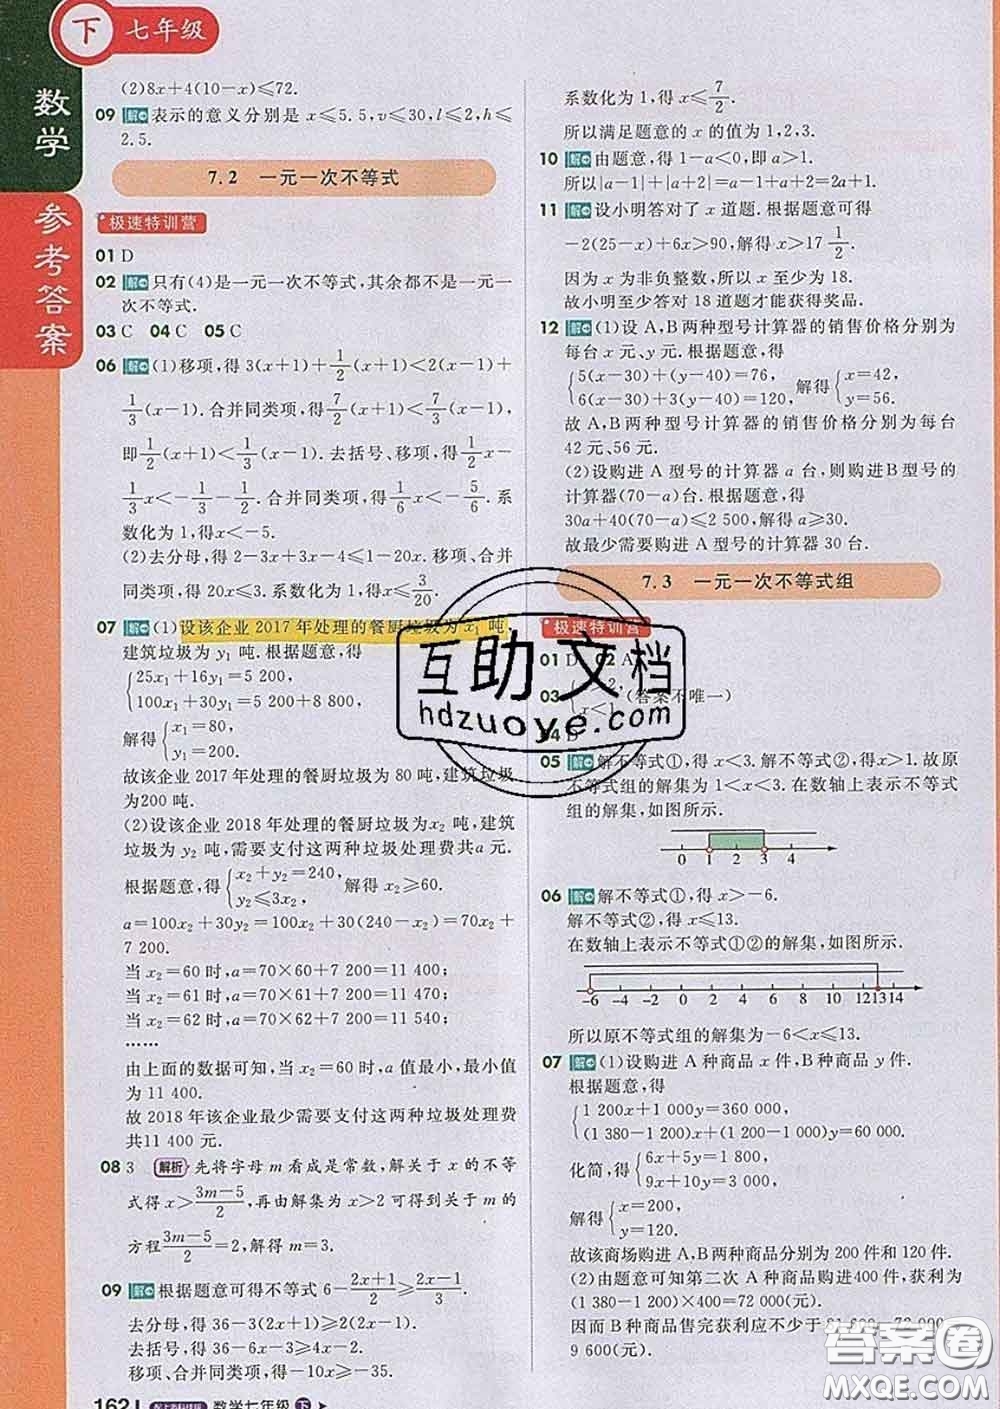 下 七年级
数学
参考答案
(2)8x+4(10-x)≤72.
09 解 表示的意义分别是 x≤5.5,v≤30,l≤2,h≤
2.5.
7.2 一元一次不等式
极速特训营
01 D
02 解 只有(4)是一元一次不等式,其余都不是一元一
次不等式.
03 C 04 C 05 C
06 解 (1)移项,得 3(x+1)+1/2(x+1)<2(x-1)+
1/3(x-1). 合并同类项,得 7/2(x+1)<7/3(x-1),
即 1/2(x+1)<1/3(x-1). 去括号、移项,得 1/2x-
1/3x<-1/3-1/2. 合并同类项,得 1/6x<-5/6. 系
数化为 1,得 x<-5.
(2)去分母,得 2-3x+3x-4≤1-20x. 移项、合并
同类项,得 20x≤3. 系数化为 1,得 x≤3/20.
07 解 (1)设该企业 2017 年处理的餐厨垃圾为 x₁ 吨,
建筑垃圾为 y₁ 吨. 根据题意,得
{25x₁+16y₁=5 200,
100x₁+30y₁=5 200+8 800,
解得{x₁=80,
y₁=200.
故该企业 2017 年处理的餐厨垃圾为 80 吨,建筑垃圾
为200 吨.
(2)设该企业 2018 年处理的餐厨垃圾为x₂ 吨,建筑
垃圾为 y₂ 吨,需要支付这两种垃圾处理费共a 元.
根据题意,得{x₂+y₂=240,
y₂≤3x₂, 解得 x₂≥60.
a=100x₂+30y₂=100x₂+30(240-x₂)=70x₂+
7 200.
当 x₂=60 时,a=70×60+7 200=11 400;
当 x₂=61 时,a=70×61+7 200=11 470;
当 x₂=62 时,a=70×62+7 200=11 540;
……
由上面的数据可知,当 x₂=60 时,a 值最小,最小值
为 11 400.
故 2018 年该企业最少需要支付这两种垃圾处理费
共11 400 元.
08 3 解析 先将字母 m 看成是常数,解关于 x 的不等
式得 x>(3m-5)/2,再由解集为 x>2 可得到关于 m 的
方程(3m-5)/2=2,解得 m=3.
09 解 根据题意可得不等式 6-(2x+1)/2≥(2x-1)/3.
去分母,得 36-3(2x+1)≥2(2x-1).
去括号,得 36-6x-3≥4x-2.
移项、合并同类项,得-10x≥-35.
162 数学七年级 下
系数化为 1,得 x≤7/2.
所以满足题意的 x 的值为 1,2,3.
10 解 由题意,得 1-a<0,即 a>1.
所以|a-1|+|a+2|=a-1+a+2=2a+1.
11 解 设小明答对了 x 道题. 根据题意可得
-2(25-x)+6x>90,解得 x>17 1/2.
因为 x 为非负整数,所以 x 至少为 18.
故小明至少答对 18 道题才能获得奖品.
12 解 (1)设 A,B两种型号计算器的销售价格分别为
每台 x 元、y 元. 根据题意,得
{5(x-30)+(y-40)=76,
6(x-30)+3(y-40)=120, 解得{x=42,
y=56.
故 A,B 两种型号计算器的销售价格分别为每台
42 元、56 元.
(2)设购进 A 型号的计算器 a 台,则购进B 型号的
计算器(70-a)台. 根据题意,得
30a+40(70-a)≤2 500,解得 a≥30.
故最少需要购进 A 型号的计算器 30 台.
7.3 一元一次不等式组
极速特训营
01 D 02 A
03 (答案不唯一)
04
05 解 解不等式①,得 x<3. 解不等式②,得x>1. 故原
不等式组的解集为 1<x<3. 在数轴上表示不等式
组的解集,如图所示.
0 1 2 3 4
06 解 解不等式①,得 x>-6.
解不等式②,得 x≤13.
在数轴上表示不等式①②的解集,如图所示.
-6 -4 -2 0 2 4 6 8 10 1213 14
所以原不等式组的解集为-6<x≤13.
07 解 (1)设购进 A 种商品 x 件,B种商品 y 件.
根据题意,得
{1 200x+1 000y=360 000,
(1 380-1 200)x+(1 200-1 000)y=60 000,
化简,得{6x+5y=1 800,
9x+10y=3 000,
解得{x=200,
y=120.
故该商场购进 A,B两种商品分别为 200 件和 120 件.
(2)由题意可知第二次 A 种商品购进400 件,获利为
(1 380-1 200)×400=72 000(元).
因而 B种商品售完获利应不少于 81 600-72 000=
9 600(元).
互助文档
hdzuoye.com
答案圈
MXQE.COM